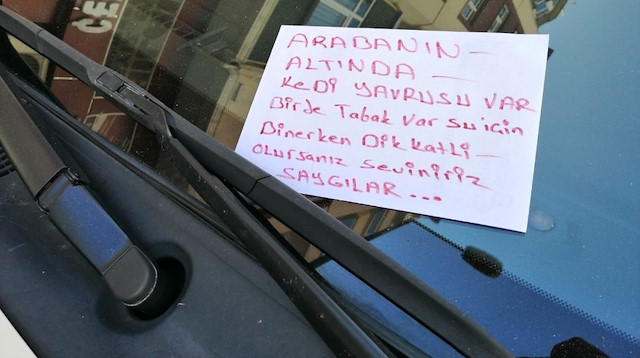 CE
ARABANIN —
ALTINDA —
KEDİ YAVRUSU VAR
Birde Tabak var su için
Binerken Dikkatli —
olursanız seviniriz
SAYGILAR...